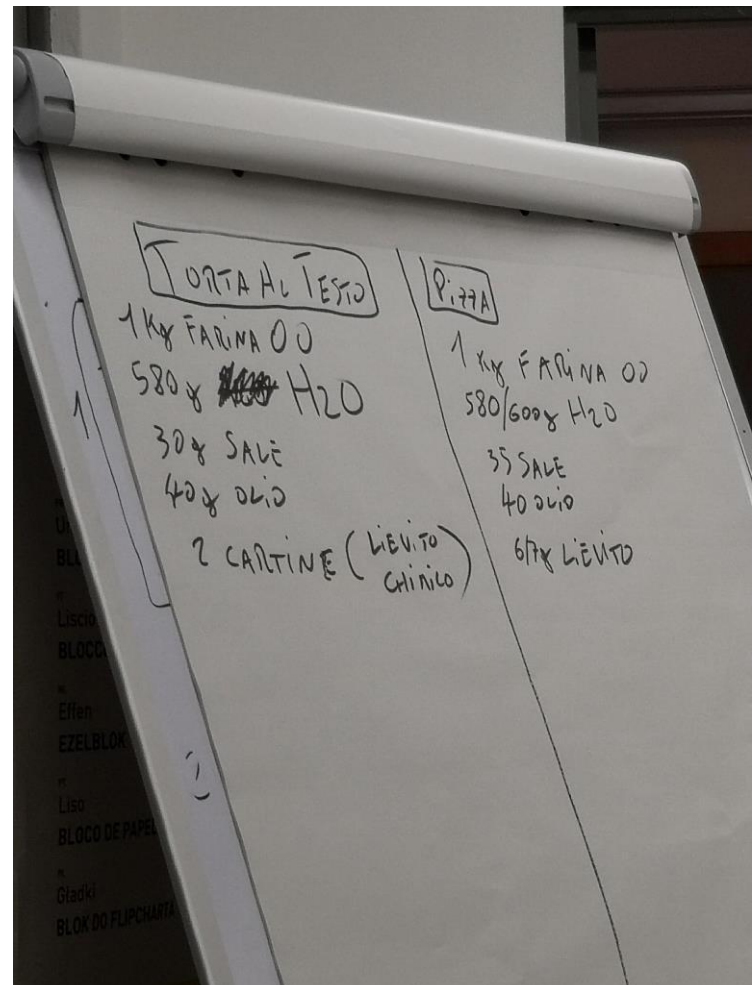 TORTA AL TESTO
1 Kg FARINA 00
580 g H2O
30 g SALE
40 g OLIO
2 CARTINE (LIEVITO CHIMICO)
PIZZA
1 Kg FARINA 00
580/600 g H2O
35 SALE
40 OLIO
6/7 g LIEVITO
Liscio
BLOCC
Effen
EZELBLOK
Liso
BLOCO DE PAPEL
Gładki
BLOK DO FLIPCHARTA